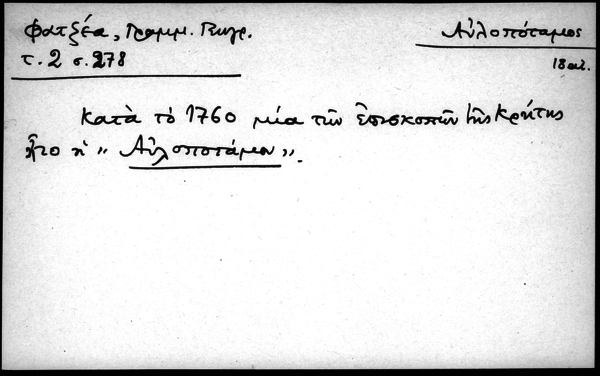 Φατζέα, Γραμμ. Γεωγρ.
τ. 2 σ. 278
Αὐλοπόταμος
18 αἰ.
Κατὰ τὸ 1760 μία τῶν ἐπισκοπῶν τῆς Κρήτης
ἦτο ἡ „Αὐλοποτάμου„.